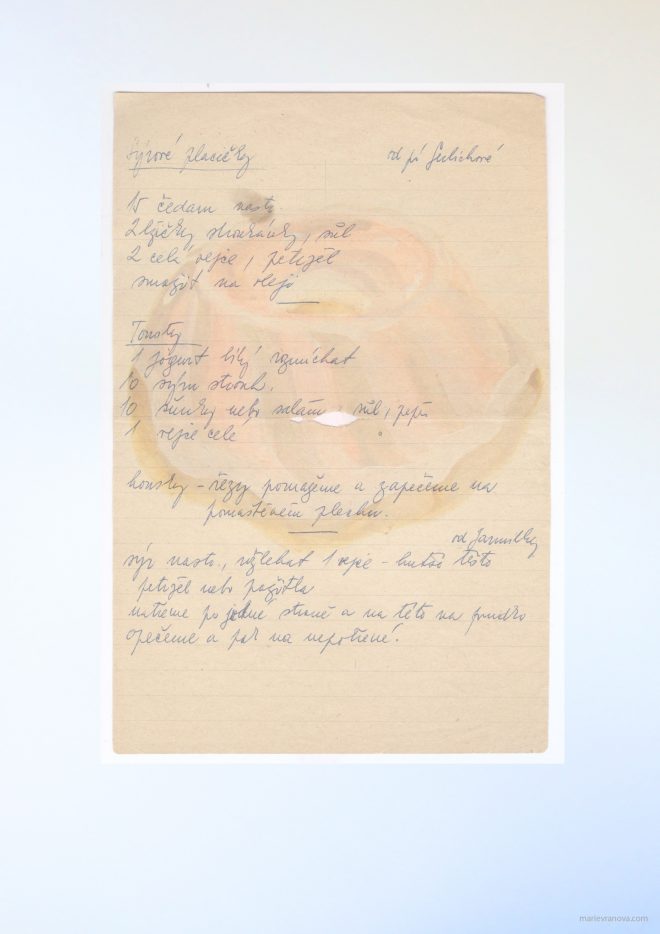 Sýrové placičky od pí Gulichové
15 čedaru nastr.
2 lžičky strouhanky, sůl
2 celá vejce, petržel
smažit na oleji
Tousty
1 jógurt bílý rozmíchat
10 sýru strouh.
10 šunky nebo salám, sůl, pepř
1 vejce celé
housky – řezy pomažeme a zapečeme na
pomaštěném plechu.
od Jarmilky
sýr nastr., rozšlehat 1 vejce – hutné těsto
petržel nebo pažitka
natřeme po jedné straně a na této na prudko
opečeme a pak na nepotřené.
marievranova.com